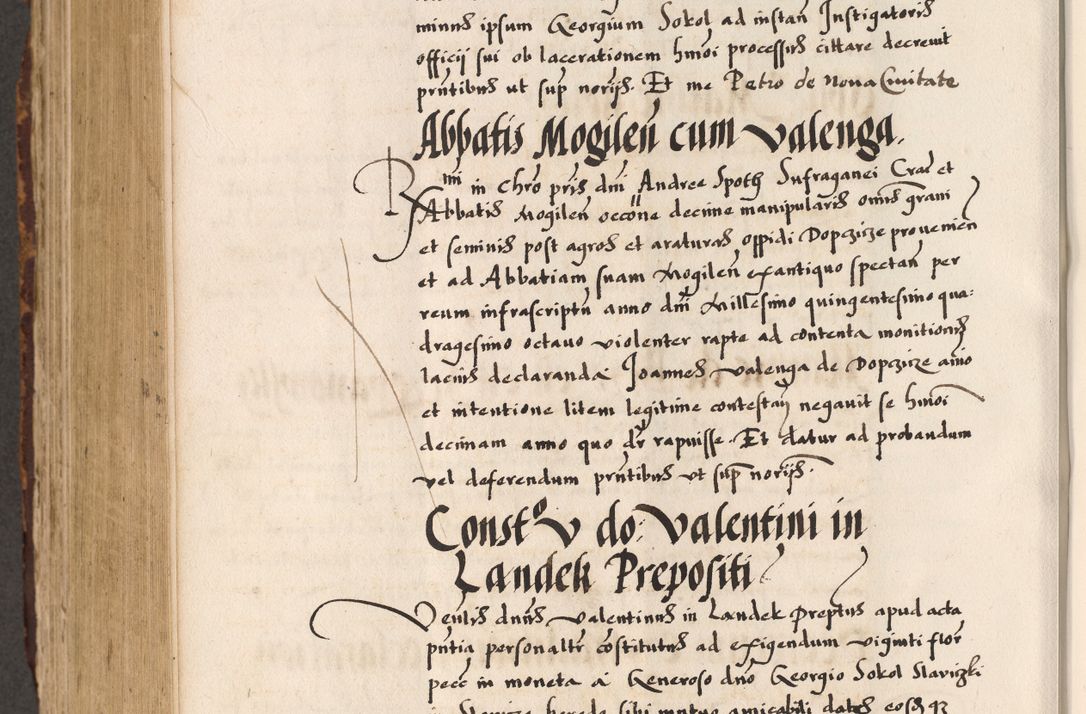 minus ipsum Georgium Sokol ad instan Instigatoris
officij sui ob lacerationem hmoi processus cittare decreuit
pntibus ut sup norijs. Et me Petro de Noua Ciuitate
Abbatis Mogileñ cum valenga.
Rmi in Chro pris dni Andree Spoth Sufraganei Crac et
Abbatis Mogileñ occoñe decime manipularis omis grani
et seminis post agros et araturas oppidi Dopczicze prouenieñ
et ad Abbatiam suam Mogileñ ex antiquo spectañ per
reum infrascriptũ anno dni Millesimo quingentesimo qua:
dragesimo octauo violenter rapte ad contenta monitionis
lacius declaranda Joannes Valenga de Dopczicze animo
et intentione litem legitime contestañ negauit se hmoi
decimam anno quo dr rapuisse. Et datur ad probandum
vel deferendum pntibus ut sup norijs.
Constº v do: Valentini in
Landek Prepositi
Venlis dnus Valentinus in Landek Preptus apud acta
pntia personalr cõstitutus ad exigendum viginti flor
pecc in moneta a Generoso dno Georgio Sokol Slaviczki
in hereda sibi mutuo amicabili datos eosdem